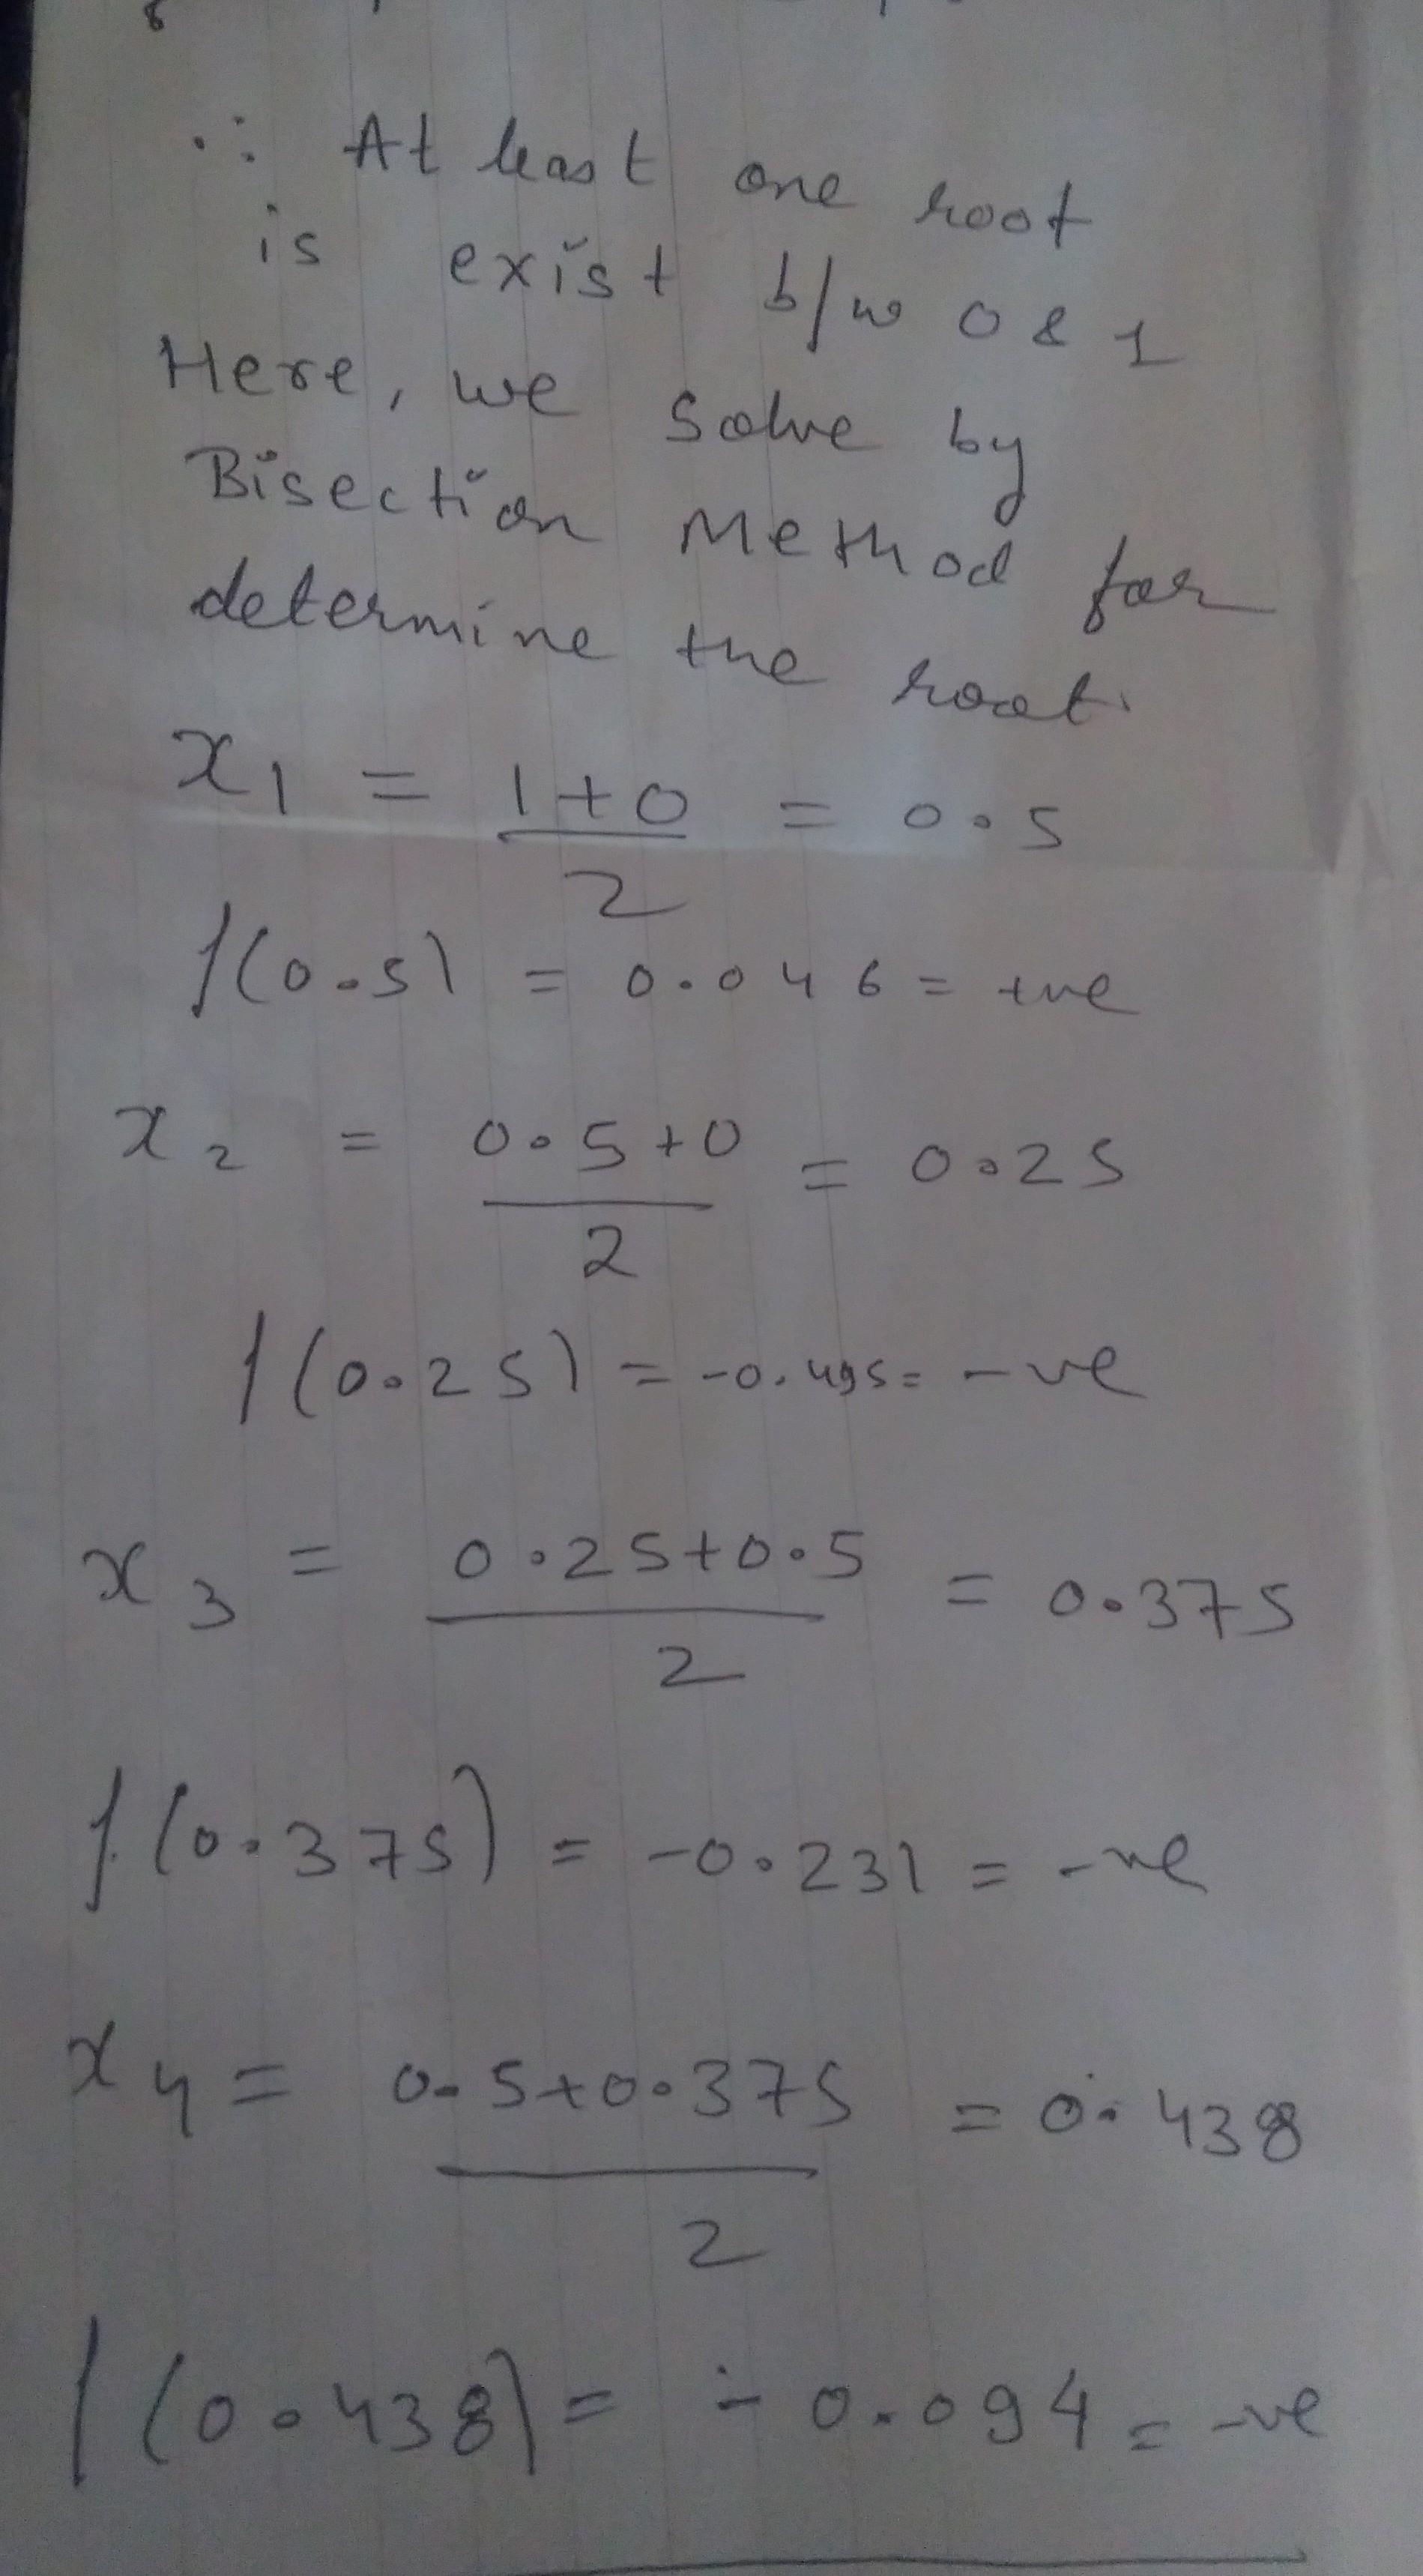 ∴ At least one root
is exist b/w 0 & 1
Here, we solve by
Bisection Method for
determine the root.
x₁ = (1+0)/2 = 0.5
f(0.5) = 0.046 = +ve
x₂ = (0.5+0)/2 = 0.25
f(0.25) = -0.495 = -ve
x₃ = (0.25+0.5)/2 = 0.375
f(0.375) = -0.231 = -ve
x₄ = (0.5+0.375)/2 = 0.438
f(0.438) = -0.094 = -ve